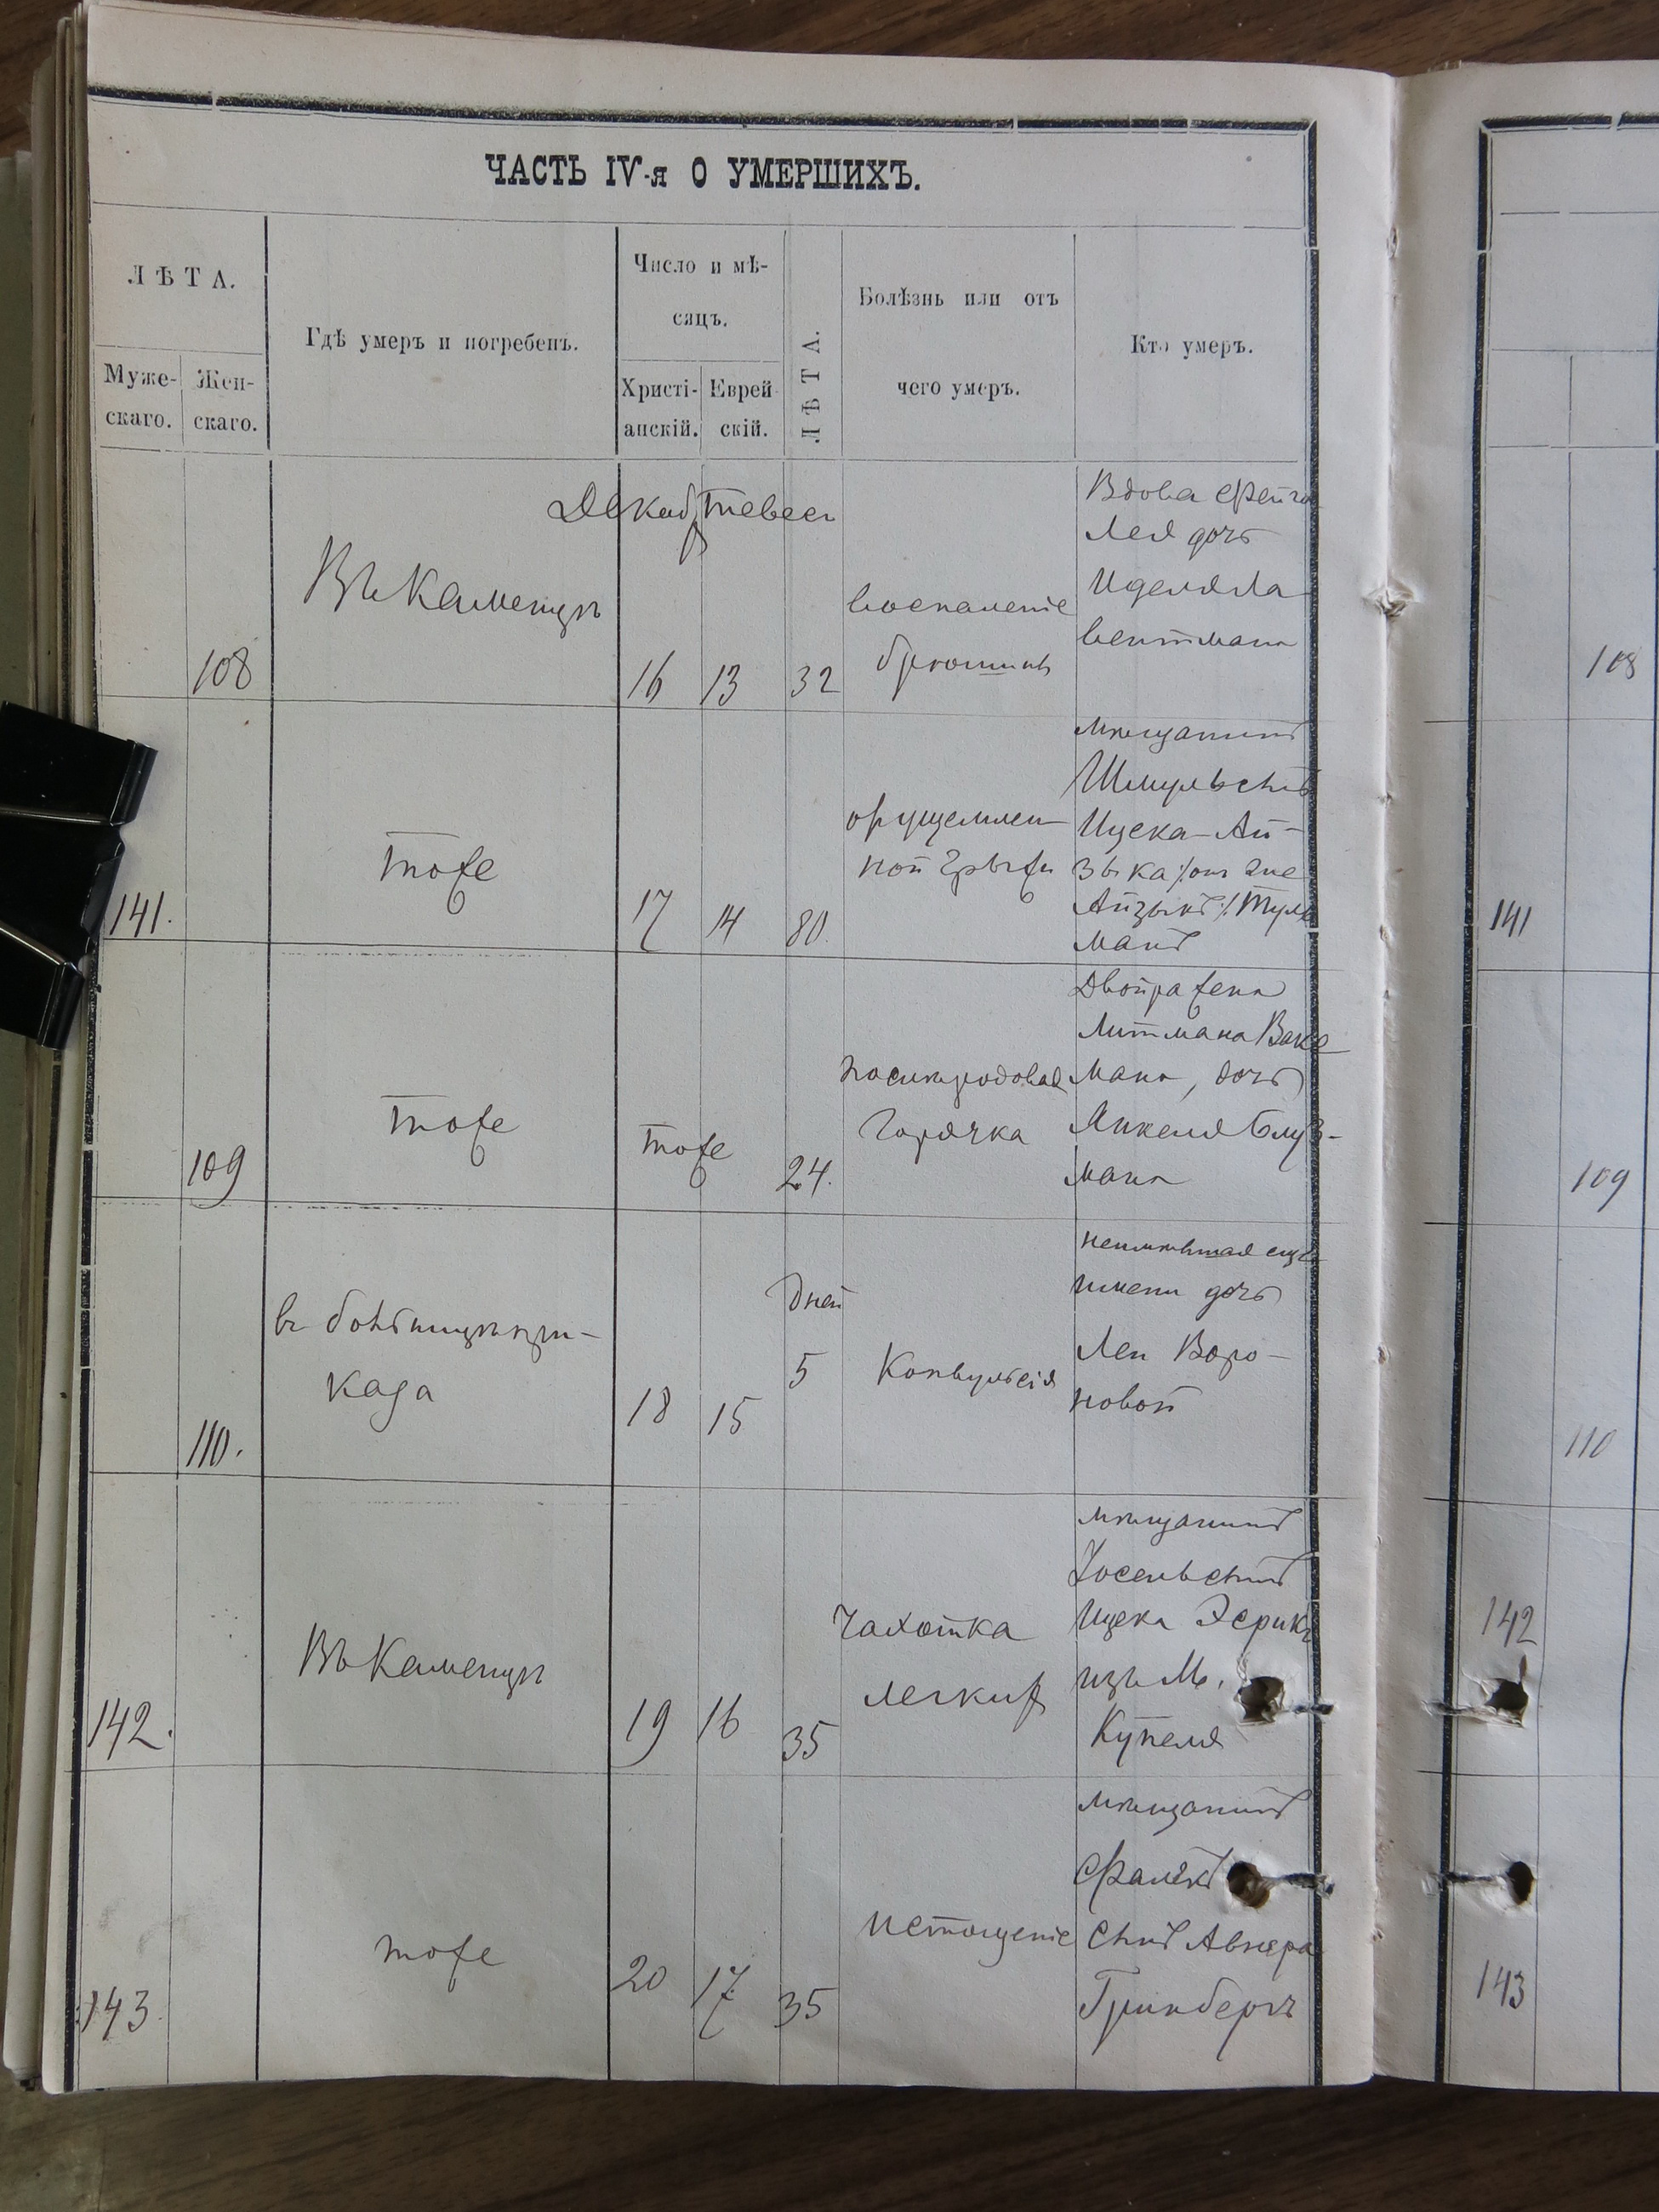 ЧАСТЬ IV-я О УМЕРШИХЪ.
ЛѢТА.
Муже-
скаго.
Жен-
скаго.
Гдѣ умеръ и погребенъ.
Число и мѣ-
сяцъ.
Христі-
анскій.
Еврей-
скій.
ЛѢТА.
Болѣзнь или отъ
чего умеръ.
Кто умеръ.
Декабр Тевесъ
108
Въ Каменцѣ
16 13 32
воспаленіе
брюшины
Вдова Фейга
Лея дочь
Иделя
141.
тоже
17 14 80.
ущемлен-
ной грыжи
мѣщанинъ
Шмуль сынъ
Ицека-Ай-
зыка /: он же
Айзыкъ :/ Туль
манъ
109
тоже
тоже
24.
послѣродовая
Горячка
Двойра жена
Литмана Вакс
мана, дочь
Янкеля Глуз-
мана
110.
въ больницѣ при-
каза
18 15
Дней
5
Конвульсія
неимѣвшая еще
имени дочь
Леи Воро-
новой
142.
Въ Каменцѣ
19 16 35
Чахотка
легкихъ
мѣщанинъ
Іосель сынъ
Ицека Эсрикъ
изъ М.
Купеля
143.
тоже
20 17 35
истощеніе
мѣщанинъ
Фалекъ
сынъ Авнера
Гринбергъ
108
141
109
110
142
143